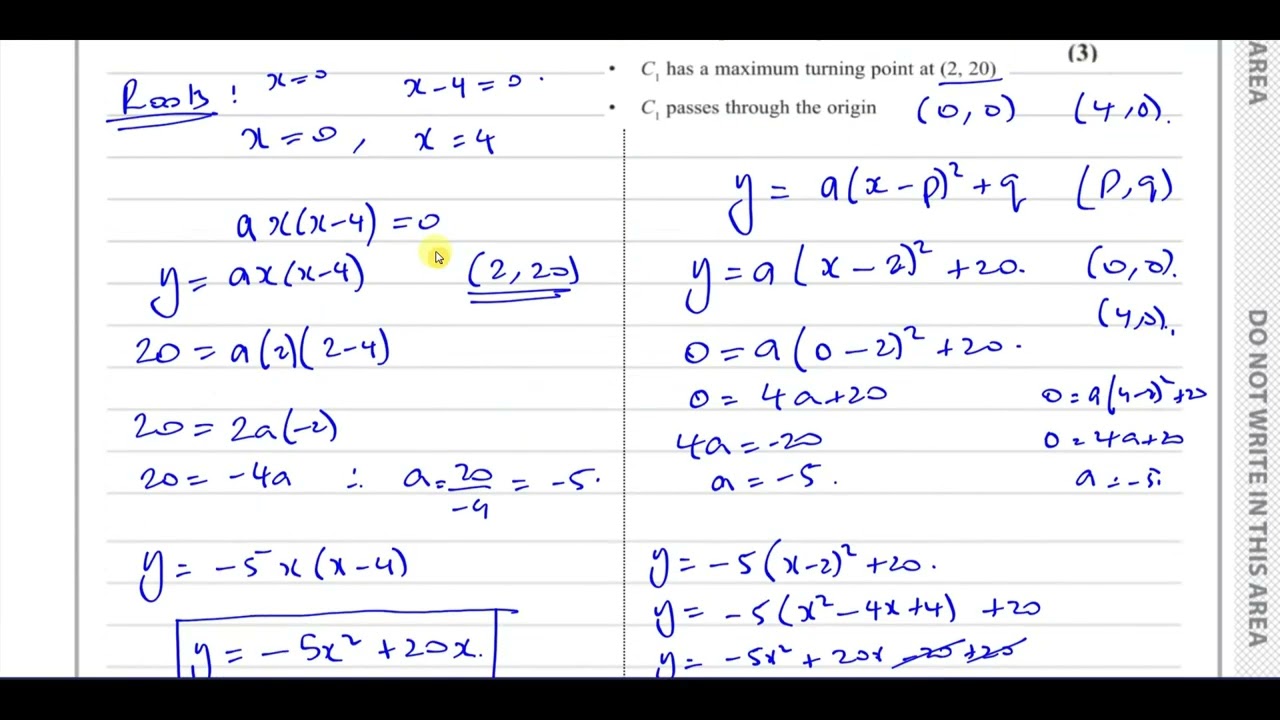 (3)
• C₁ has a maximum turning point at (2, 20)
• C₁ passes through the origin (0, 0) (4, 0).
Roots : x = 0 x - 4 = 0 .
x = 0 , x = 4
a x(x-4) = 0
y = ax(x-4) (2, 20)
20 = a(2)(2-4)
20 = 2a(-2)
20 = -4a ∴ a = 20/-4 = -5.
y = -5x(x-4)
y = -5x² + 20x.
y = a(x-p)² + q (p, q)
y = a(x-2)² + 20. (0, 0).
(4, 0).
0 = a(0-2)² + 20.
0 = 4a+20
4a = -20
a = -5.
0 = a(4-2)²+20
0 = 4a+20
a = -5.
y = -5(x-2)² + 20.
y = -5(x²-4x+4) + 20
y = -5x² + 20x -20+20
AREA
DO NOT WRITE IN THIS AREA